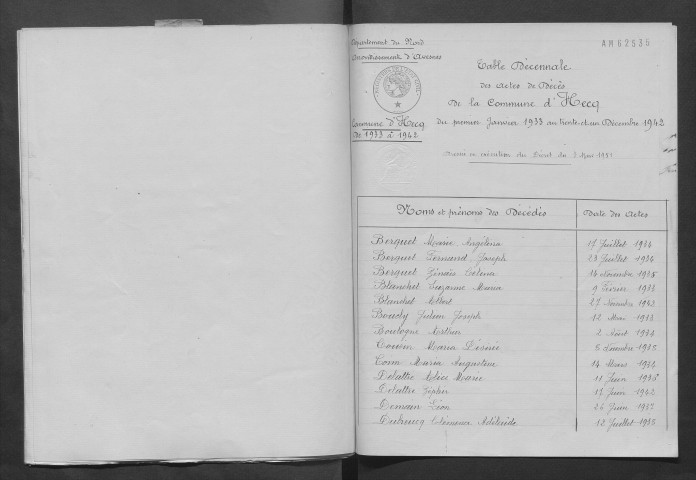 Département du Nord
Arrondissement d'Avesnes
Commune d'Hecq
De 1933 à 1942
AM62535
Table Décennale
des Actes de Décès
De la Commune d'Hecq
du premier Janvier 1933 au trente-et-un Décembre 1942
Dressée en exécution du Décret du 3 Mars
Noms et prénoms des Décédés
Date des Actes
Berquet Marie Angélina 17 Juillet 1934
Berquet Fernand Joseph 23 Juillet 1934
Berquet 14 Novembre 1935
Blanchet Suzanne Maria 9 Février 1933
Blanchet Albert 27 Novembre 1942
Boudy Julien Joseph 12 Mai 1933
Boulogne Arthur 2 Août 1934
Maria Désirée 8 Décembre 1935
Maria Augustine 14 Mars 1934
Delattre Alice Marie 11 Juin 1935
Delattre 17 Juin 1942
Demain Léon 26 Juin
Clémence Adélaïde 12 Juillet 1935